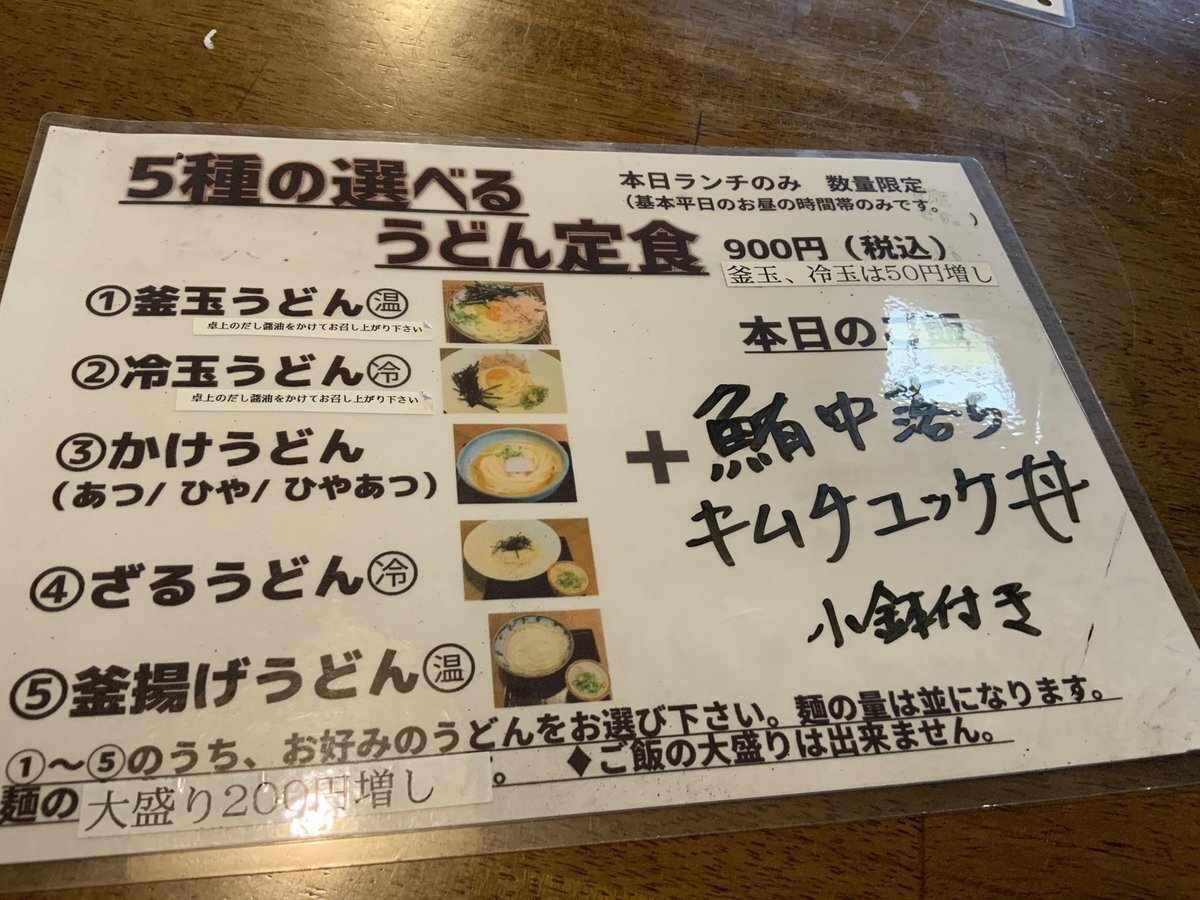 5種の選べる
うどん定食
本日ランチのみ 数量限定
（基本平日のお昼の時間帯のみです。 ）
900円（税込）
釜玉、冷玉は50円増し
①釜玉うどん㊀温
卓上のだし醤油をかけてお召し上がり下さい
②冷玉うどん 冷
卓上のだし醤油をかけてお召し上がり下さい
③かけうどん
（あつ/ ひや/ ひやあつ）
④ざるうどん 冷
⑤釜揚げうどん 温
本日のご飯
+
鮪中落ち
キムチユッケ丼
小鉢付き
①〜⑤のうち、お好みのうどんをお選び下さい。麺の量は並になります。
麺の 大盛り200円増し 。 ♦ご飯の大盛りは出来ません。